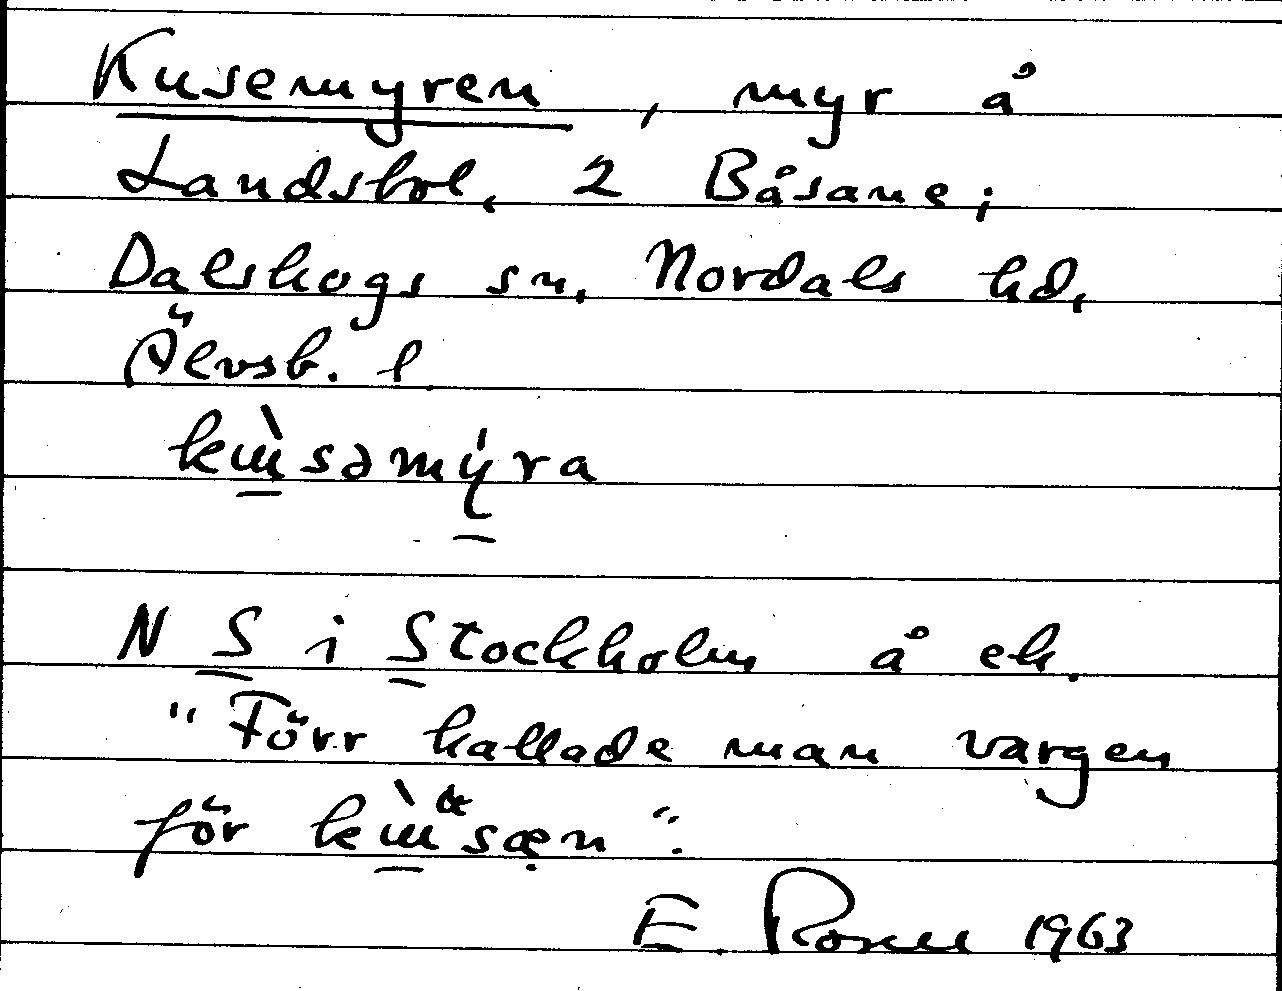 Kusemyren, myr å
Landsbol, 2 Båsane;
Dalskogs sn, Nordals hd,
Älvsb. l.
kɯ̀səmy̍ra
N S i Stockholm å ek.
"Förr kallade man vargen
för kɯ̀sæn".
E. Rosell 1963